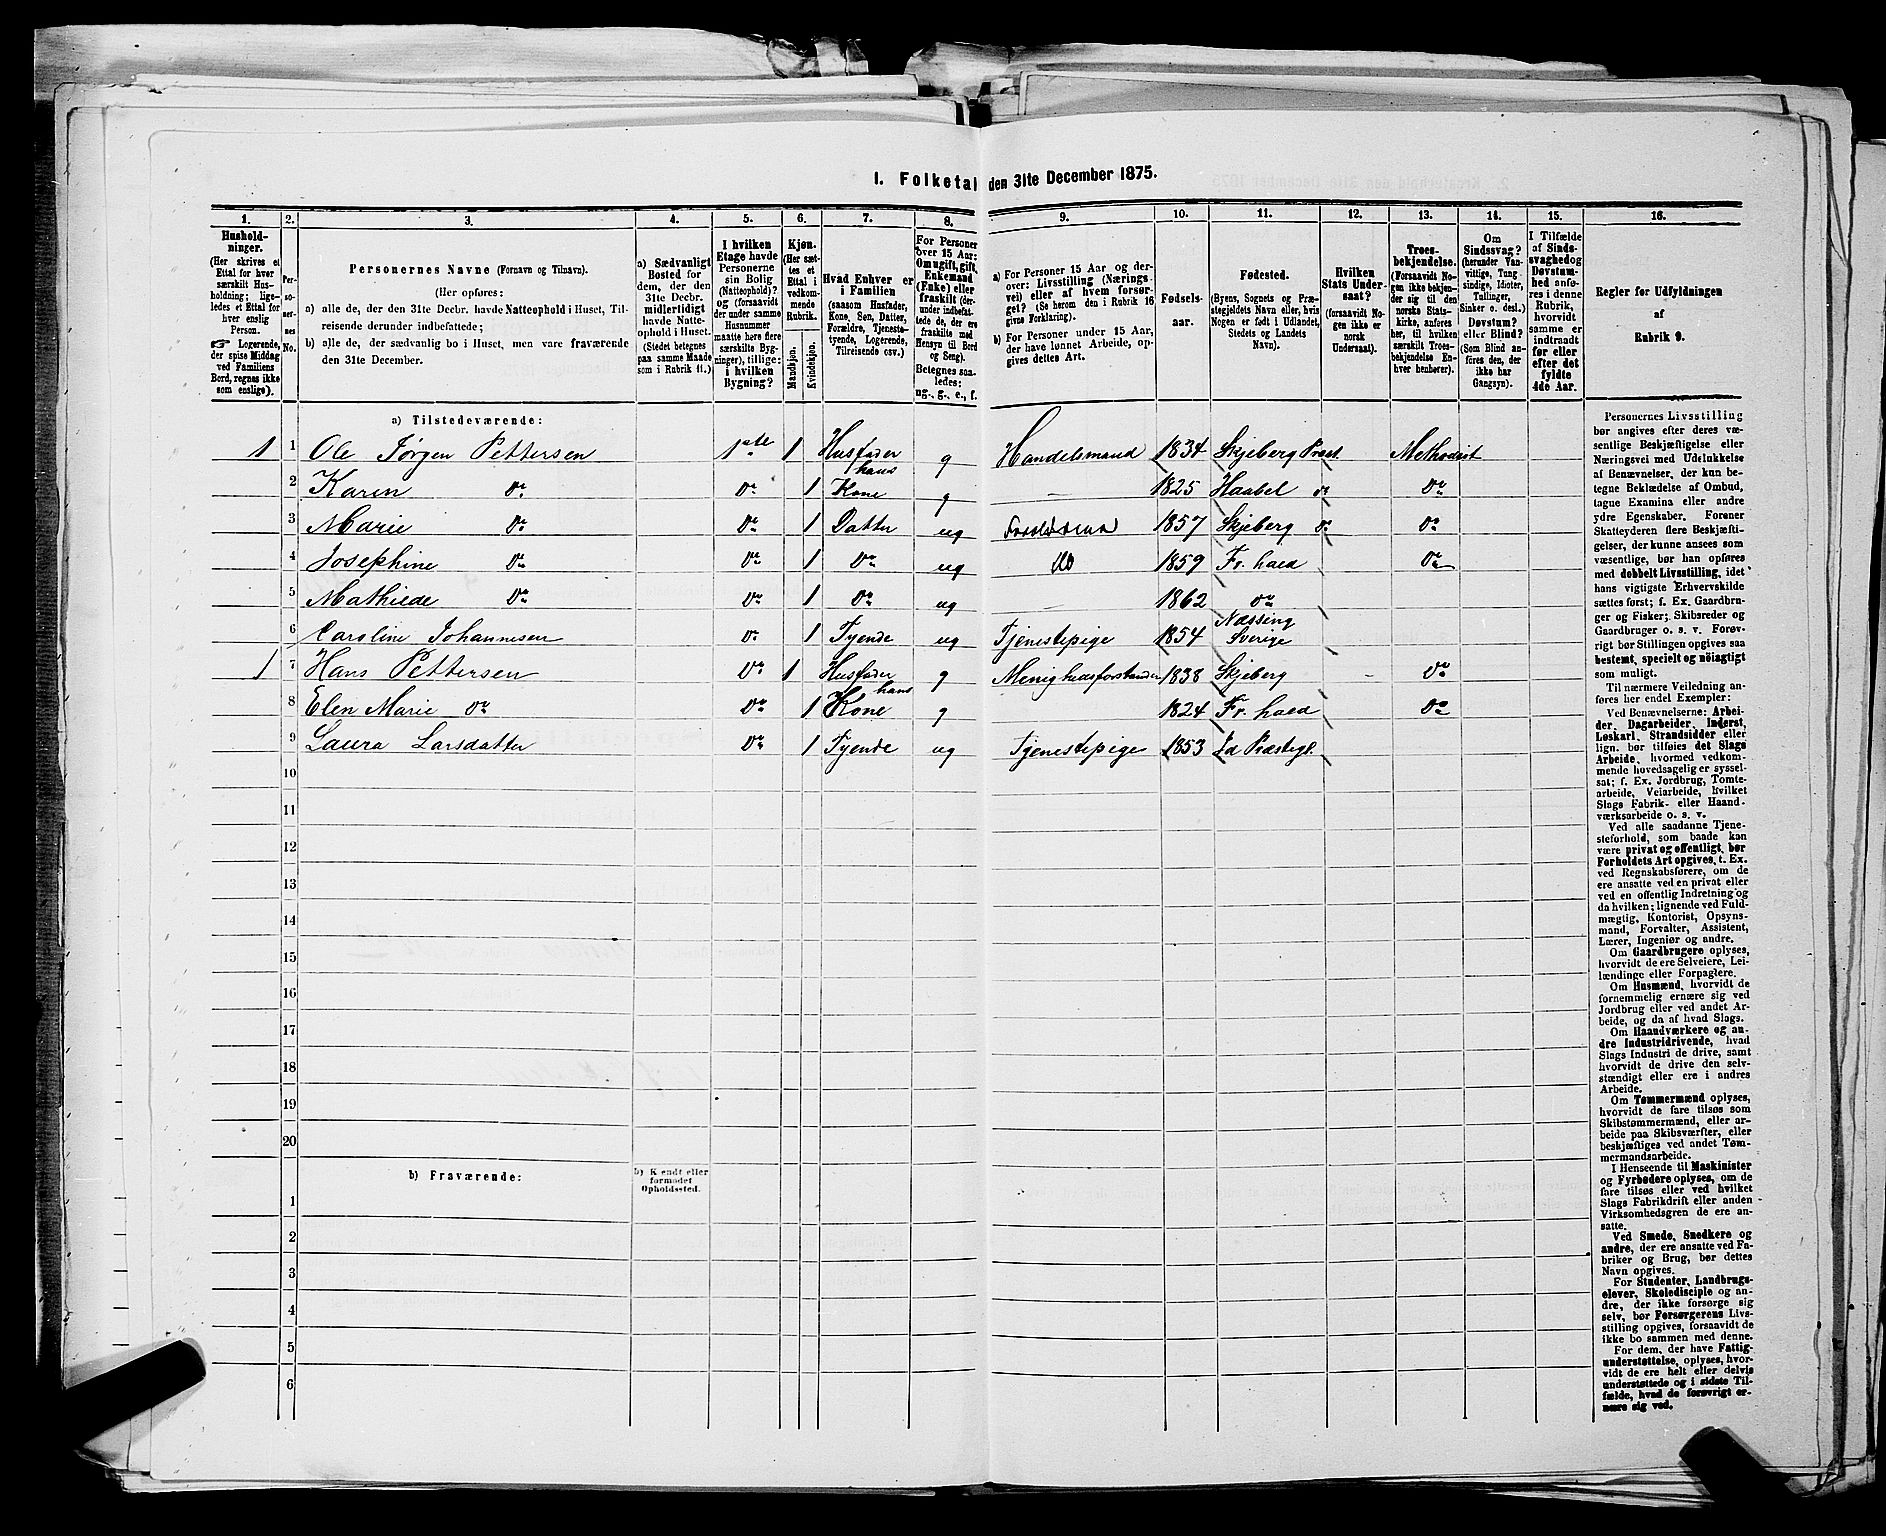 1. Folketal den 31te December 1875.
1. 2. 3. 4. 5. 6. 7. 8. 9. 10. 11. 12. 13. 14. 15. 16.
Hushold-
ninger.
(Her skrives et
Ettal for hver
særskilt Hus-
holdning; lige-
ledes et Ettal for
hver enslig
Person.
☞ Logerende,
der spise Middag
ved Familiens
Bord, regnes ikke
som enslige).
Per-
so-
ner-
nes
No.
Personernes Navne (Fornavn og Tilnavn).
(Her opføres:
a) alle de, der den 31te Decbr. havde Natteophold i Huset, Til-
reisende derunder indbefattede;
b) alle de, der sædvanlig bo i Huset, men vare fraværende
den 31te December.
a) Sædvanligt
Bosted for
dem, der den
31te Decbr.
midlertidigt
havde Natte-
ophold i Huset.
(Stedet betegnes
paa samme Maade
som i Rubrik 11.)
I hvilken
Etage havde
Personerne
sin Bolig
(Natteophold)?
og (forsaavidt
der under samme
Husnummer
maatte høre flere
særskilte Byg-
ninger), tillige:
i hvilken
Bygning?
Kjøn.
(Her sæt-
tes et
Ettal i
vedkom-
mende
Rubrik.
Mandkjøn.
Kvindekjøn.
Hvad Enhver er
i Familien
(saasom Husfader,
Kone, Søn, Datter,
Forældre, Tjeneste-
tyende, Logerende,
Tilreisende osv.)
For Personer
over 15 Aar:
Om ugift, gift,
Enkemand
(Enke) eller
fraskilt (der-
under indbefat-
tede de, der ere
fraskilte med
Hensyn til Bord
og Seng).
Betegnes saa-
ledes:
ug., g., e., f.
a) For Personer 15 Aar og der-
over: Livsstilling (Nærings-
vei) eller af hvem forsør-
get? (Se herom den i Rubrik 16
givne Forklaring).
b) For Personer under 15 Aar,
der have lønnet Arbeide, op-
gives dettes Art.
Fødsels-
aar.
Fødested.
(Byens, Sognets og Præ-
stegjeldets Navn eller, hvis
Nogen er født i Udlandet,
Stedets og Landets
Navn).
Hvilken
Stats Under-
saat?
(forsaavidt No-
gen ikke er
norsk
Undersaat).
Troes-
bekjendelse.
(Forsaavidt No-
gen ikke bekjen-
der sig til den
norske Stats-
kirke, anføres
her, til hvilken
særskilt Troes-
bekjendelse En-
hver henhører).
Om
Sindssvag?
(herunder Van-
vittige, Tung-
sindige, Idioter,
Tullinger,
Sinker o. desl.)
Døvstum?
eller Blind?
(Som Blind an-
føres den, der
ikke har
Gangsyn).
I Tilfælde
af Sinds-
svaghed og
Døvstum-
hed anfø-
res i denne
Rubrik,
hvorvidt
samme er
indtraadt
før eller
efter det
fyldte
4de Aar.
Regler for Udfyldningen
af
Rubrik 9.
a) Tilstedeværende:
1 1 Ole Jørgen Pettersen 1ste 1 Husfader g Handelsmand 1834 Skjeberg Præst Methodist
2 Karen Do Do 1 hans Kone g — 1825 Haabøl do Do
3 Marie Do Do 1 Datter ug 1857 Skjeberg do Do
4 Josephine Do Do 1 Do ug do 1859 Fr. hald Do
5 Mathilde Do Do 1 Do ug — 1862 do
6 Caroline Johannesen Do 1 Tyende ug Tjenestepige 1854 Næssing Sverige
1 7 Hans Pettersen Do 1 Husfader g Menighedsforstander 1838 Skjeberg - Do
8 Elen Marie Do Do 1 hans Kone g 1824 Fr. hald Do
9 Laura Larsdatter Do 1 Tyende ug Tjenestepige 1853 Id Præstegl.
10
11
12
13
14
15
16
17
18
19
20
b) Fraværende:
b) Kjendt eller
formodet
Opholdssted.
1
2
3
4
5
6
Personernes Livsstilling
bør angives efter deres væ-
sentlige Beskjæftigelse eller
Næringsvei med Udelukkelse
af Benævnelser, der kun be-
tegne Beklædelse af Ombud,
tagne Examina eller andre
ydre Egenskaber. Forener
Skatteyderen flere Beskjæfti-
gelser, der kunne ansees som
væsentlige, bør han opføres
med dobbelt Livsstilling, idet
hans vigtigste Erhvervskilde
sættes først; f. Ex. Gaardbru-
ger og Fisker; Skibsreder og
Gaardbruger o. s. v. Forøv-
rigt bør Stillingen opgives saa
bestemt, specielt og nøiagtigt
som muligt.
Til nærmere Veiledning an-
føres her endel Exempler:
Ved Benævnelserne: Arbei-
der, Dagarbeider, Inderst,
Løskarl, Strandsidder eller
lign. bør tilføies det Slags
Arbeide, hvormed vedkom-
mende hovedsagelig er syssel-
sat; f. Ex. Jordbrug, Tomte-
arbeide, Veiarbeide, hvilket
Slags Fabrik- eller Haand-
værksarbeide o. s. v.
Ved alle saadanne Tjene-
steforhold, som baade kan
være privat og offentligt, bør
Forholdets Art opgives, t. Ex.
ved Regnskabsførere, om de
ere ansatte ved en privat eller
ved en offentlig Indretning og
da hvilken; lignende ved Fuld-
mægtig, Kontorist, Opsyns-
mand, Forvalter, Assistent,
Lærer, Ingeniør og andre.
Om Gaardbrugere oplyses,
hvorvidt de ere Selveiere, Lei-
lændinge eller Forpagtere.
Om Husmænd, hvorvidt de
fornemmelig ernære sig ved
Jordbrug eller ved andet Ar-
beide, og da af hvad Slags.
Om Haandværkere og an-
dre Industridrivende, hvad
Slags Industri de drive, samt
hvorvidt de drive den selv-
stændigt eller ere i andres
Arbeide.
Om Tømmermænd oplyses,
hvorvidt de fare tilsøs som
Skibstømmermænd, eller ar-
beide paa Skibsværfter, eller
beskjæftiges ved andet Tøm-
mermandsarbeide.
I Henseende til Maskinister
og Fyrbødere oplyses, om de
fare tilsøs eller ved hvilket
Slags Fabrikdrift eller anden
Virksomhedsgren de ere an-
satte.
Ved Smede, Snedkere og
andre, der ere ansatte ved Fa-
briker og Brug, bør dettes
Navn opgives.
For Studenter, Landbrugs-
elever, Skoledisciple og an-
dre, der ikke forsørge sig
selv, bør Forsørgerens Livs-
stilling opgives, forsaavidt de
ikke bo sammen med denne.
For dem, der have Fattig-
understøttelse, oplyses, hvor-
vidt de ere helt eller delvis
understøttede og i sidste Til-
fælde, hvad de forøvrigt er-
nære sig ved.